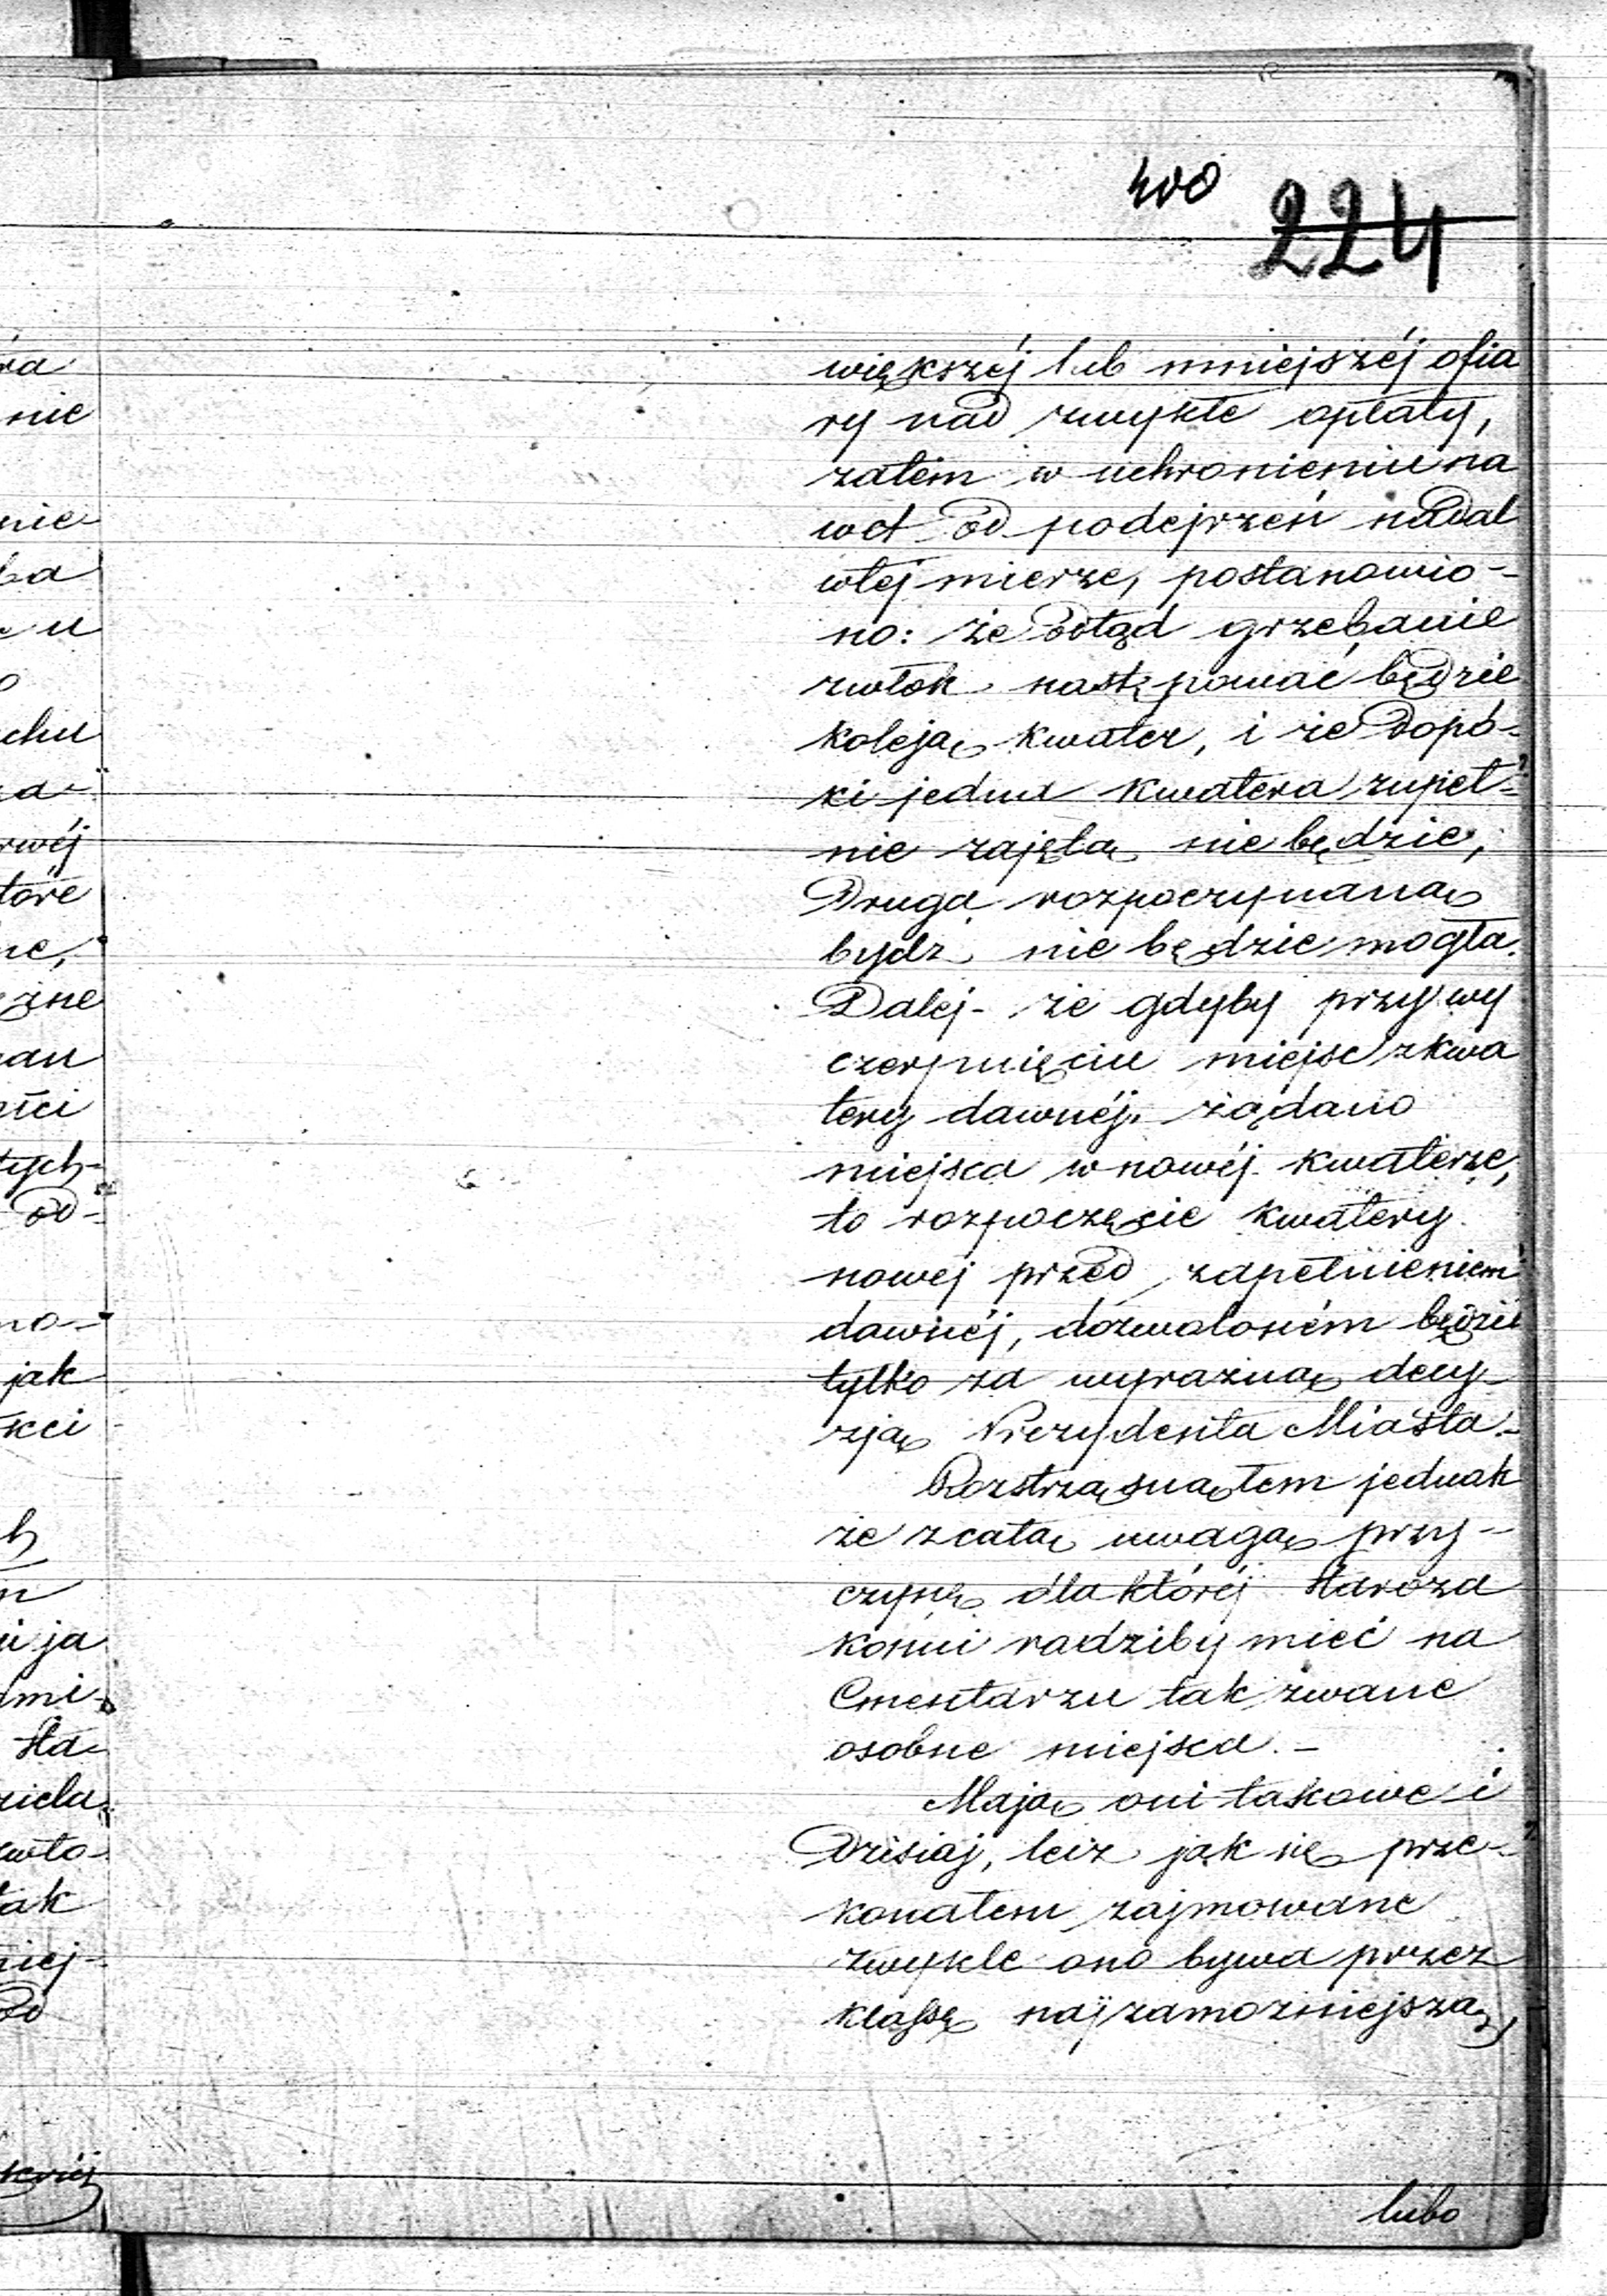 400
224
większéj lub mniejszéj ofia
ry nad zwykłe opłaty,
zatém w uchronieniu na
wet od podejrzeń nadal
wtej mierze, postanowio-
no: że odtąd grzebanie
zwłok następować będzie
koleją kwater, i że dopó-
ki jedna kwatera zupeł-
nie zajętą nie będzie,
Druga rozpoczynaną
bydź nie będzie mogła.
Dalej - że gdyby przy wy
czerpnięciu miejsc zkwa
tery dawnéj żądano
miejsca w nowéj kwaterze,
to rozpoczęcie kwatery
nowej przed zapełnieniem
dawnéj, dozwoloném będzie
tylko za wyraźną decy-
zją Prezydenta Miasta.-
Rozstrząsnąłem jednak
że zcałą uwagą przy-
czynę dla któréj Staroza
konni radziby mieć na
Cmentarzu tak zwane
osobne miejsca.-
Mają oni takowe i
Dzisiaj, lecz jak się prze-
konałem zajmowane
zwykle ono bywa przez
klassę najzamożniejszą,
lubo
nie
nie
chu
tóre
tych-
od-
no-
jak
kci
ja
ami-
Sta-
tak